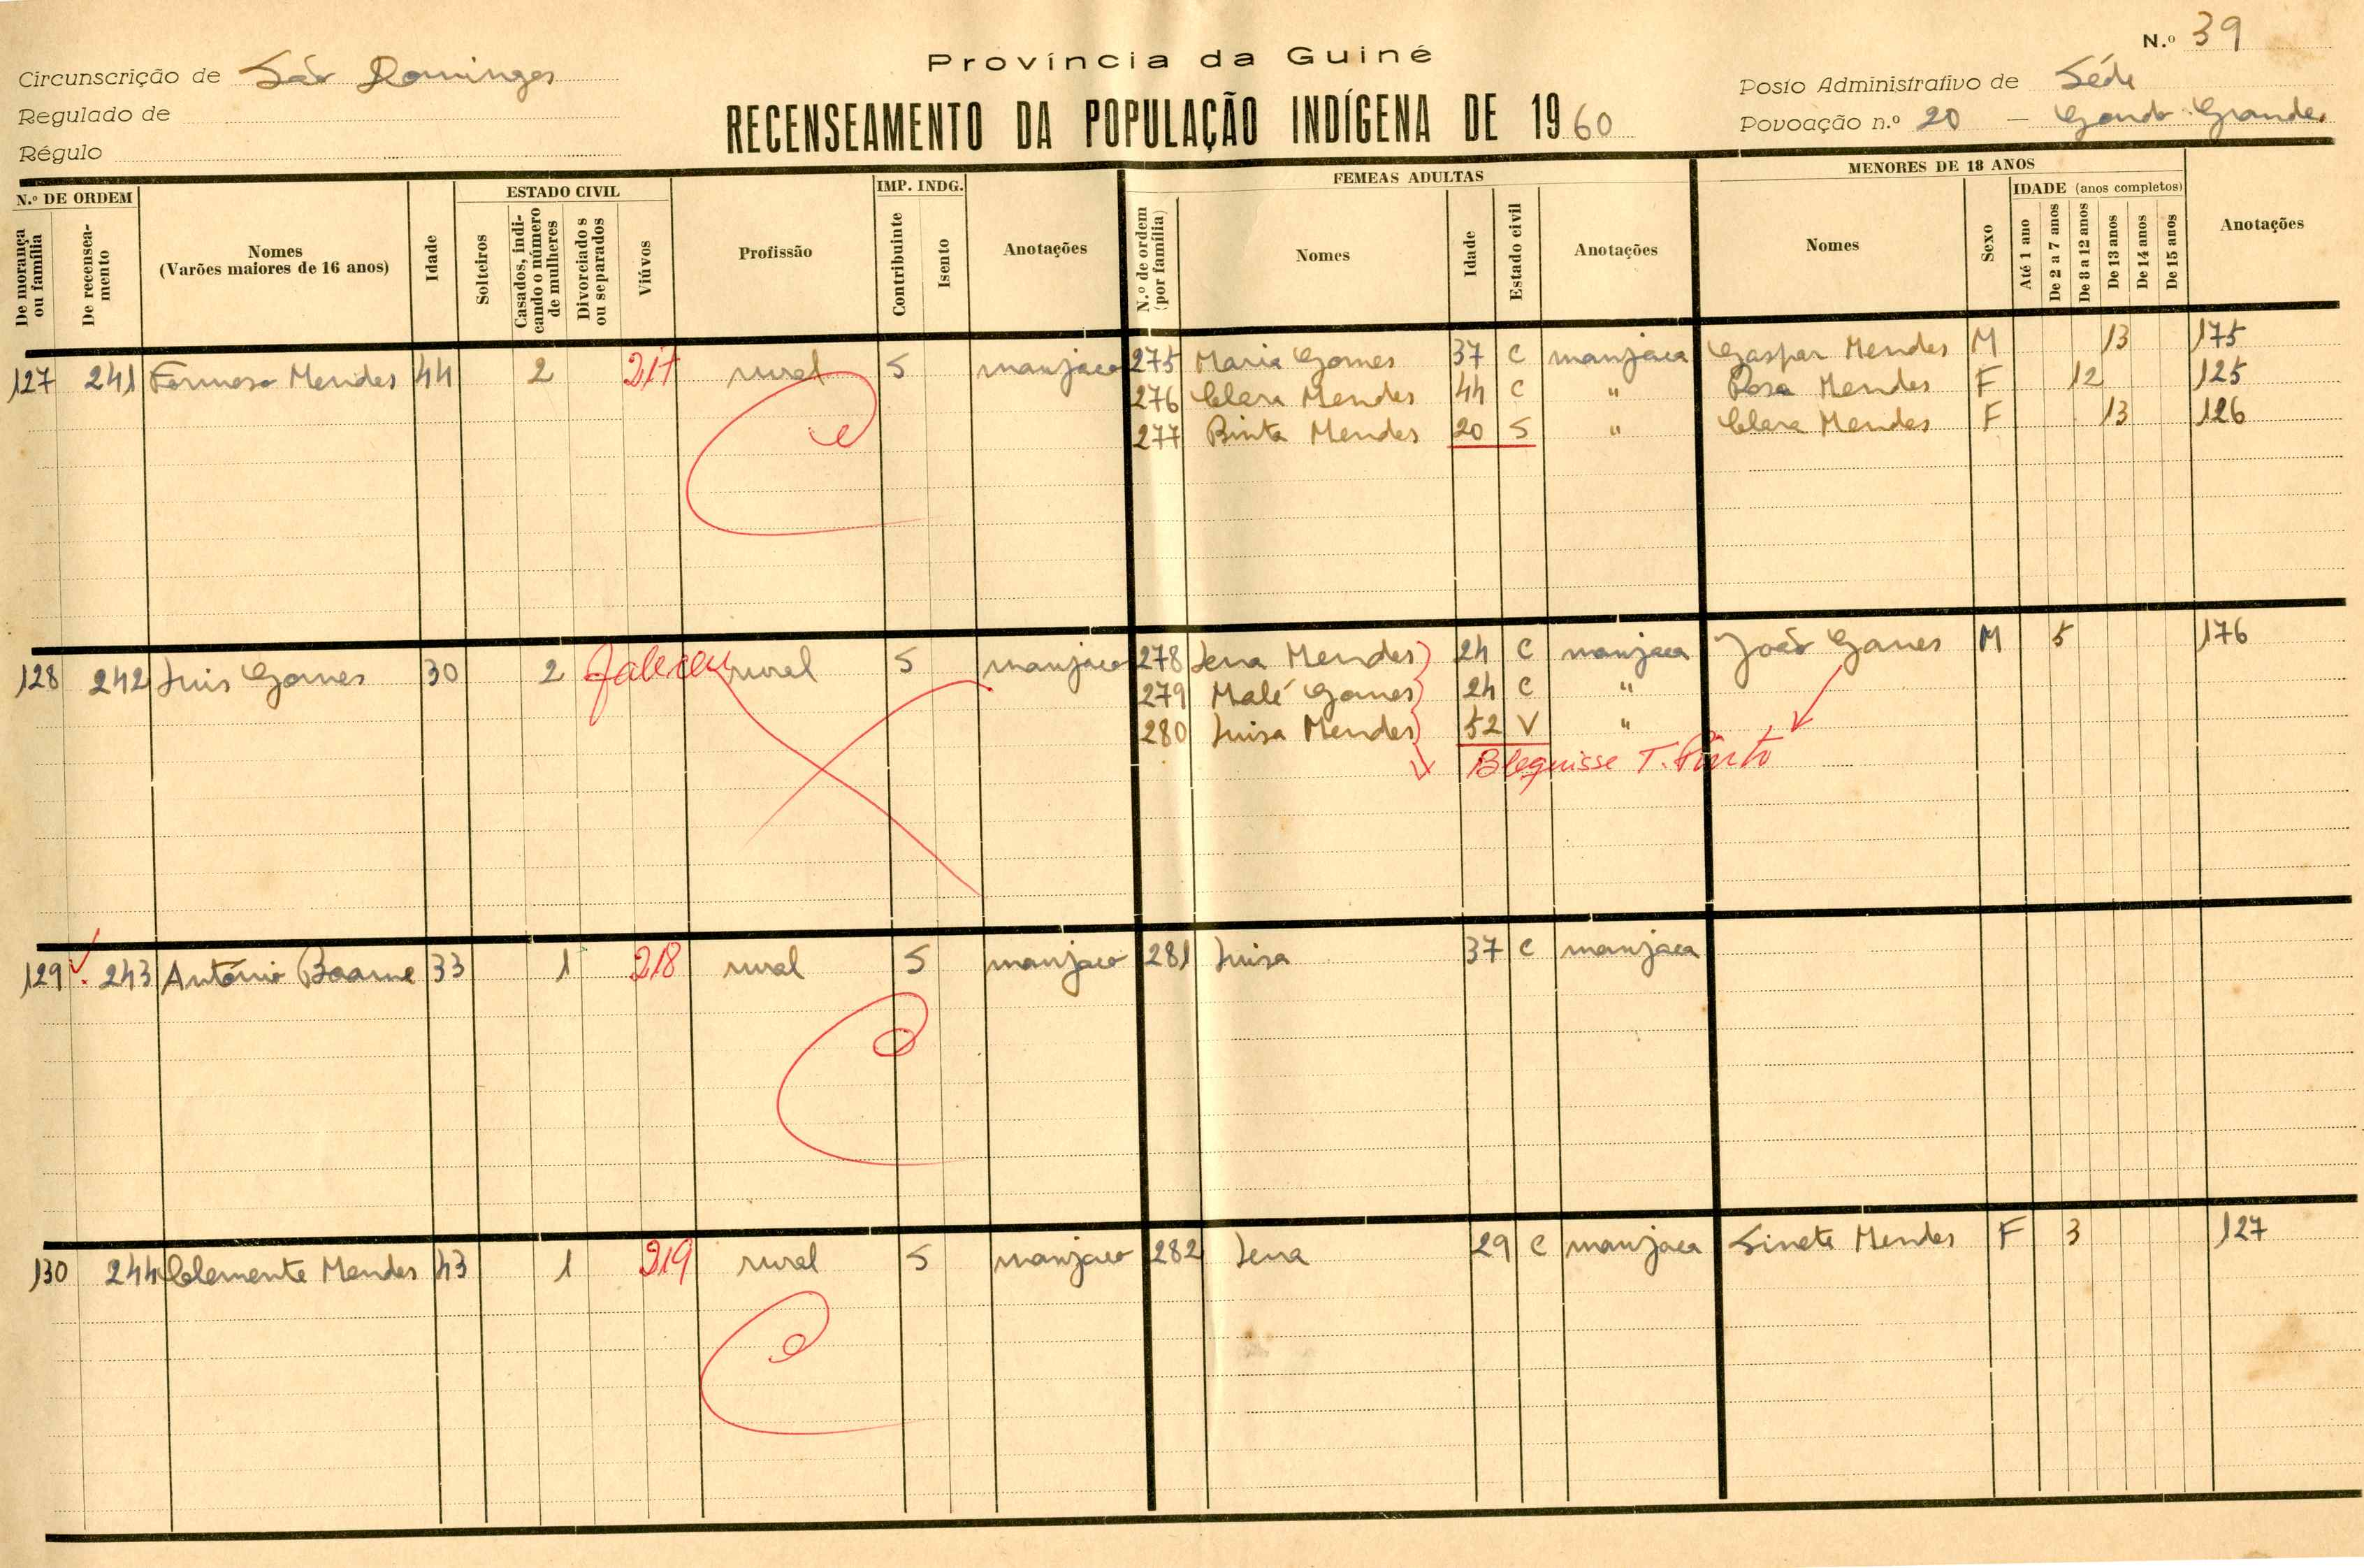 N.º 39
Província da Guiné
Circunscrição de São Domingos
Posto Administrativo de Séde
Regulado de
RECENSEAMENTO DA POPULAÇÃO INDÍGENA DE 1960
Povoação n.º 20 — Grande
Régulo
N.º DE ORDEM
De morança ou família
De recenseamento
Nomes
(Varões maiores de 16 anos)
Idade
ESTADO CIVIL
Solteiros
Casados, indicando o número de mulheres
Divorciados ou separados
Viúvos
Profissão
IMP. INDG.
Contribuinte
Isento
Anotações
FEMEAS ADULTAS
N.º de ordem (por família)
Nomes
Idade
Estado civil
Anotações
MENORES DE 18 ANOS
Nomes
Sexo
IDADE (anos completos)
Até 1 ano
De 2 a 7 anos
De 8 a 12 anos
De 13 anos
De 14 anos
De 15 anos
Anotações
127 241 Formoso Mendes 44 2 217 rural S manjaco 275 Maria Gomes 37 C manjaca Gaspar Mendes M 13 175
276 Clara Mendes 44 C " Rosa Mendes F 12 125
277 Binta Mendes 20 S " Clara Mendes F 13 126
128 242 Luis Gomes 30 2 faleceu rural S manjaco 278 Lena Mendes 24 C manjaca João Gomes M 5 176
279 Malé Gomes 24 C "
280 Luisa Mendes 52 V "
Blequisse T. Pinto
129 243 António Boame 33 1 218 rural S manjaco 281 Luisa 37 C manjaca
130 244 Clemente Mendes 43 1 219 rural S manjaco 282 Lena 29 C manjaca Sinete Mendes F 3 127